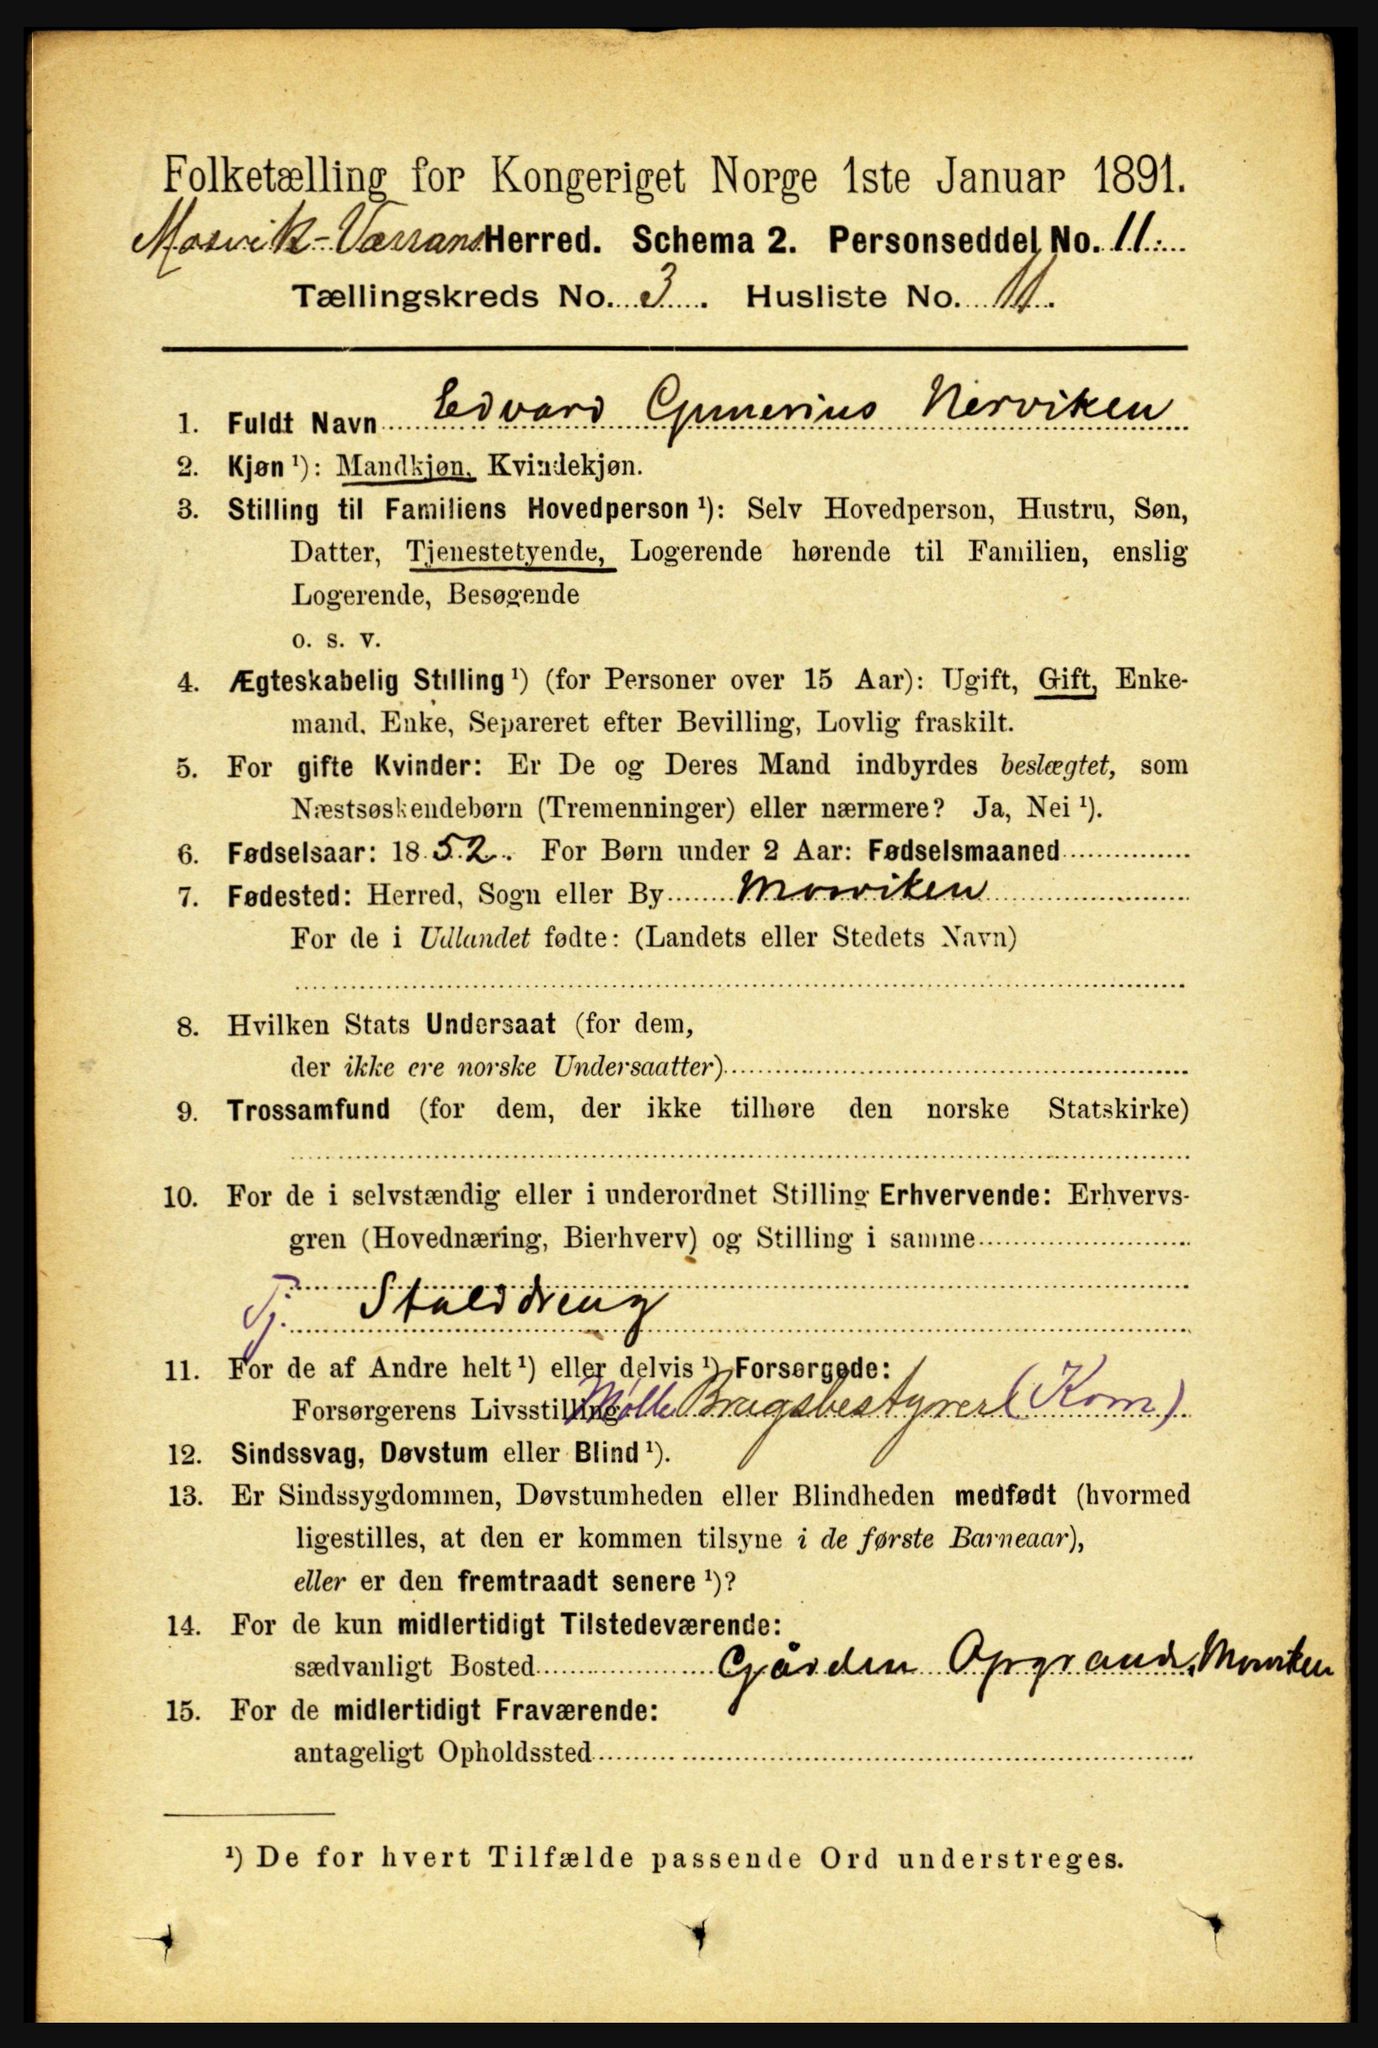 Folketælling for Kongeriget Norge 1ste Januar 1891.
Mosvik-Værrans Herred. Schema 2. Personseddel No. 11.
Tællingskreds No. 3. Husliste No. 11.
1. Fuldt Navn Edvard Gunerius Nerviken
2. Kjøn ¹): Mandkjøn, Kvindekjøn.
3. Stilling til Familiens Hovedperson ¹): Selv Hovedperson, Hustru, Søn,
Datter, Tjenestetyende, Logerende hørende til Familien, enslig
Logerende, Besøgende
o. s. v.
4. Ægteskabelig Stilling ¹) (for Personer over 15 Aar): Ugift, Gift, Enke-
mand, Enke, Separeret efter Bevilling, Lovlig fraskilt.
5. For gifte Kvinder: Er De og Deres Mand indbyrdes beslægtet, som
Næstsøskendebørn (Tremenninger) eller nærmere? Ja, Nei ¹).
6. Fødselsaar: 1852. For Børn under 2 Aar: Fødselsmaaned
7. Fødested: Herred, Sogn eller By Mosviken
For de i Udlandet fødte: (Landets eller Stedets Navn)
8. Hvilken Stats Undersaat (for dem,
der ikke ere norske Undersaatter)
9. Trossamfund (for dem, der ikke tilhøre den norske Statskirke)
10. For de i selvstændig eller i underordnet Stilling Erhvervende: Erhvervs-
gren (Hovednæring, Bierhverv) og Stilling i samme
Tj. Stalddreng
11. For de af Andre helt ¹) eller delvis ¹) Forsørgede:
Forsørgerens Livsstilling Mølle Brugsbestyrer (Korn)
12. Sindssvag, Døvstum eller Blind ¹).
13. Er Sindssygdommen, Døvstumheden eller Blindheden medfødt (hvormed
ligestilles, at den er kommen tilsyne i de første Barneaar),
eller er den fremtraadt senere ¹)?
14. For de kun midlertidigt Tilstedeværende:
sædvanligt Bosted Gården Opgrande, Mosviken
15. For de midlertidigt Fraværende:
antageligt Opholdssted
¹) De for hvert Tilfælde passende Ord understreges.